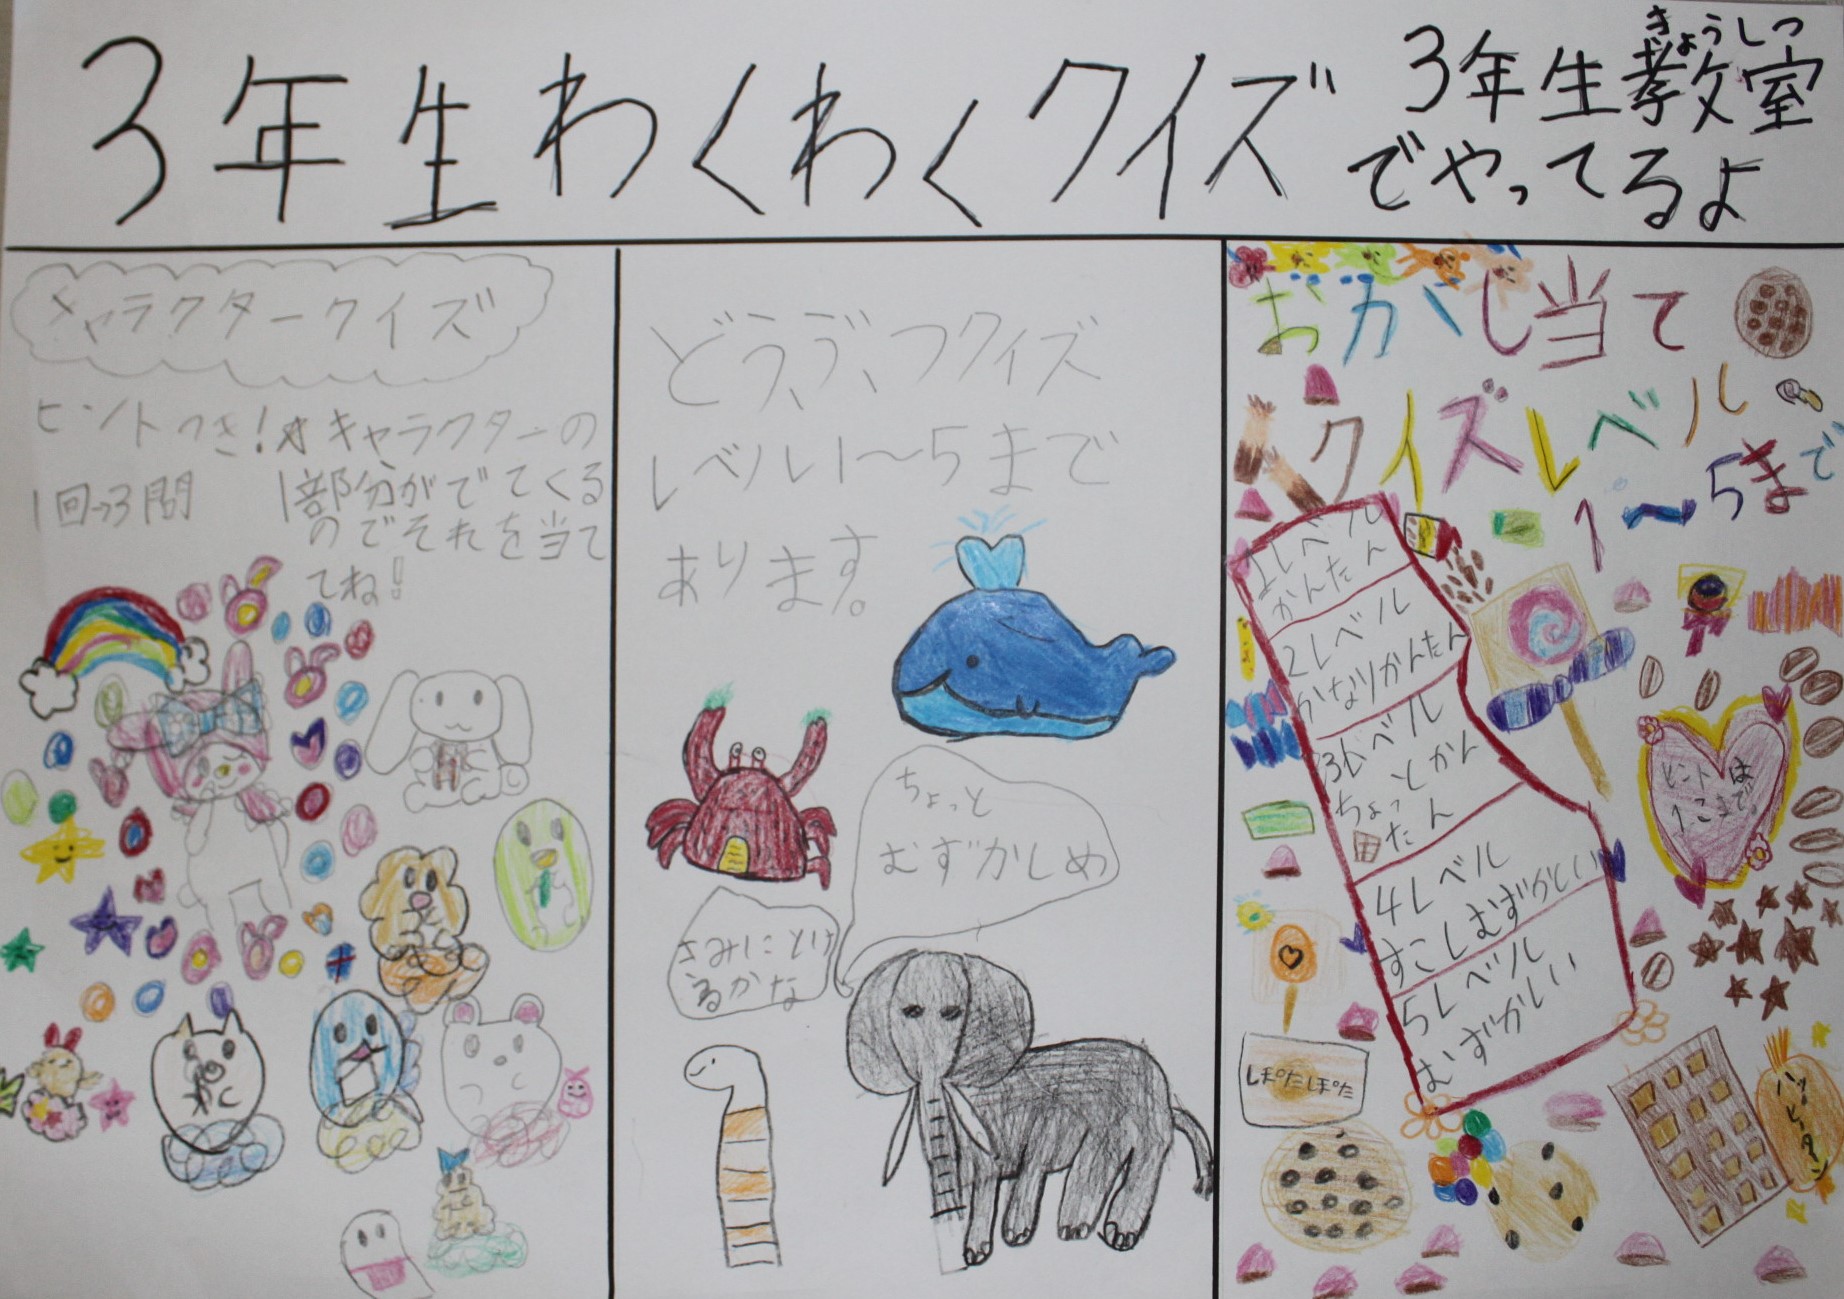 3年生わくわくクイズ
3年生教室
きょうしつ
でやってるよ
キャラクタークイズ
ヒントつき!
1回→3問
キャラクターの
1部分がでてくる
のでそれを当て
てね!
どうぶつクイズ
レベル1〜5まで
あります。
ちょっと
むずかしめ
きみにとけ
るかな
おかし当て
クイズレベル
1〜5まで
1レベル
かんたん
2レベル
かなりかんたん
3レベル
ちょっとかん
たん
4レベル
すこしむずかしい
5レベル
むずかしい
ヒントは
1こまで。
しぽたしぽた
ハッピータン